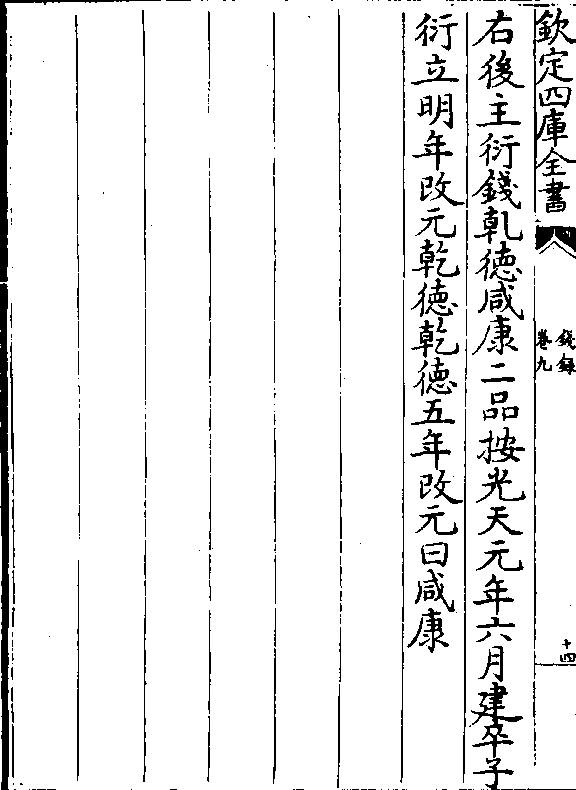 欽定四庫全書
錢録
卷九
十四
右後主衍錢乹德咸康二品按光天元年六月建卒子
衍立明年改元乾德乾德五年改元曰咸康